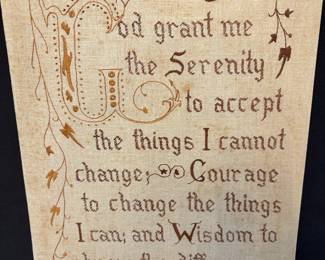 God grant me
the Serenity
to accept
the things I cannot
change; Courage
to change the things
I can; and Wisdom to